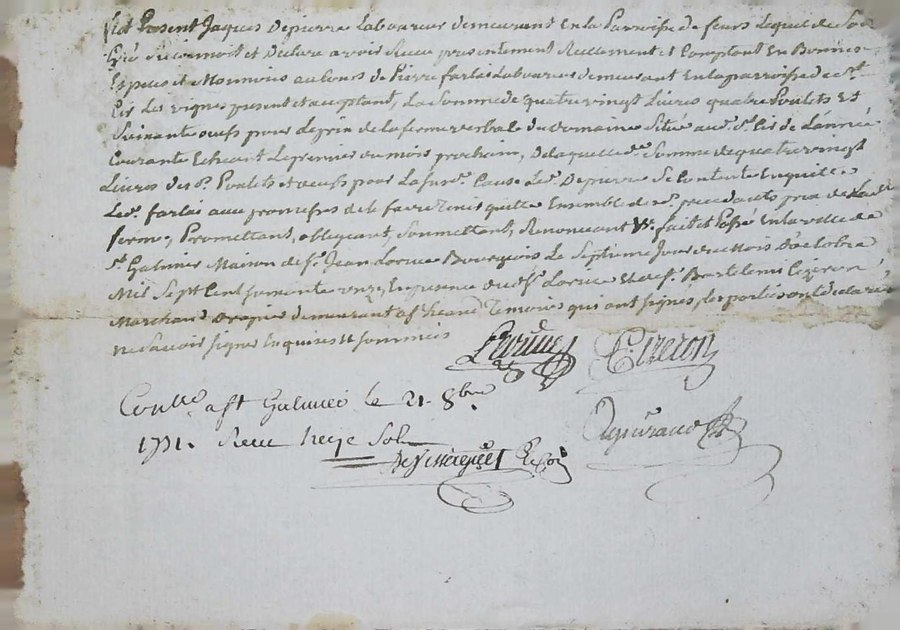 fut Present Jaques Depierre Laboureur demeurant En la Parroisse de feurs Lequel de Son
Gré reconnoit et declare avoir Receu presentement Reellement et Comptant En Bonnes
Especes et Monnoies au Cours de Pierre farlai Laboureur demeurant En la parroisse de St
Cir Les vignes present et acceptant, La Somme de quatre vingt Livres quatre Poulets Et
Soixante oeufs pour le prix de la ferme verbale du Domaine Situé aud. St Cir de L'année
Courante Echeant Le premier du mois prochain, de laquelle de. Somme de quatre vingt
Livres des d. Poulets et oeufs pour La Cause Led. Depierre Se Contente En quitte
Led. farlai aux promesses de le faire tenir quitte Ensemble de precedants prix de Lad.
ferme, Promettant, obligeant, Soumettant, Renonceant fait et Passé En la ville de
St Galmier Maison de Sr. Jean Bourgeois Le Septieme Jour du Mois D'octobre
Mil Sept Cent Soixante onze En presence dud. Sr. et de Sr. Bartelemi Cizeron
Marchand demeurant a St Temoins qui ont signés, les parties ont declaré
ne Savoir signer Enquises et Sommées
Cizeron
a St Galmier le 21. 8bre
1771. Receu treize Sols